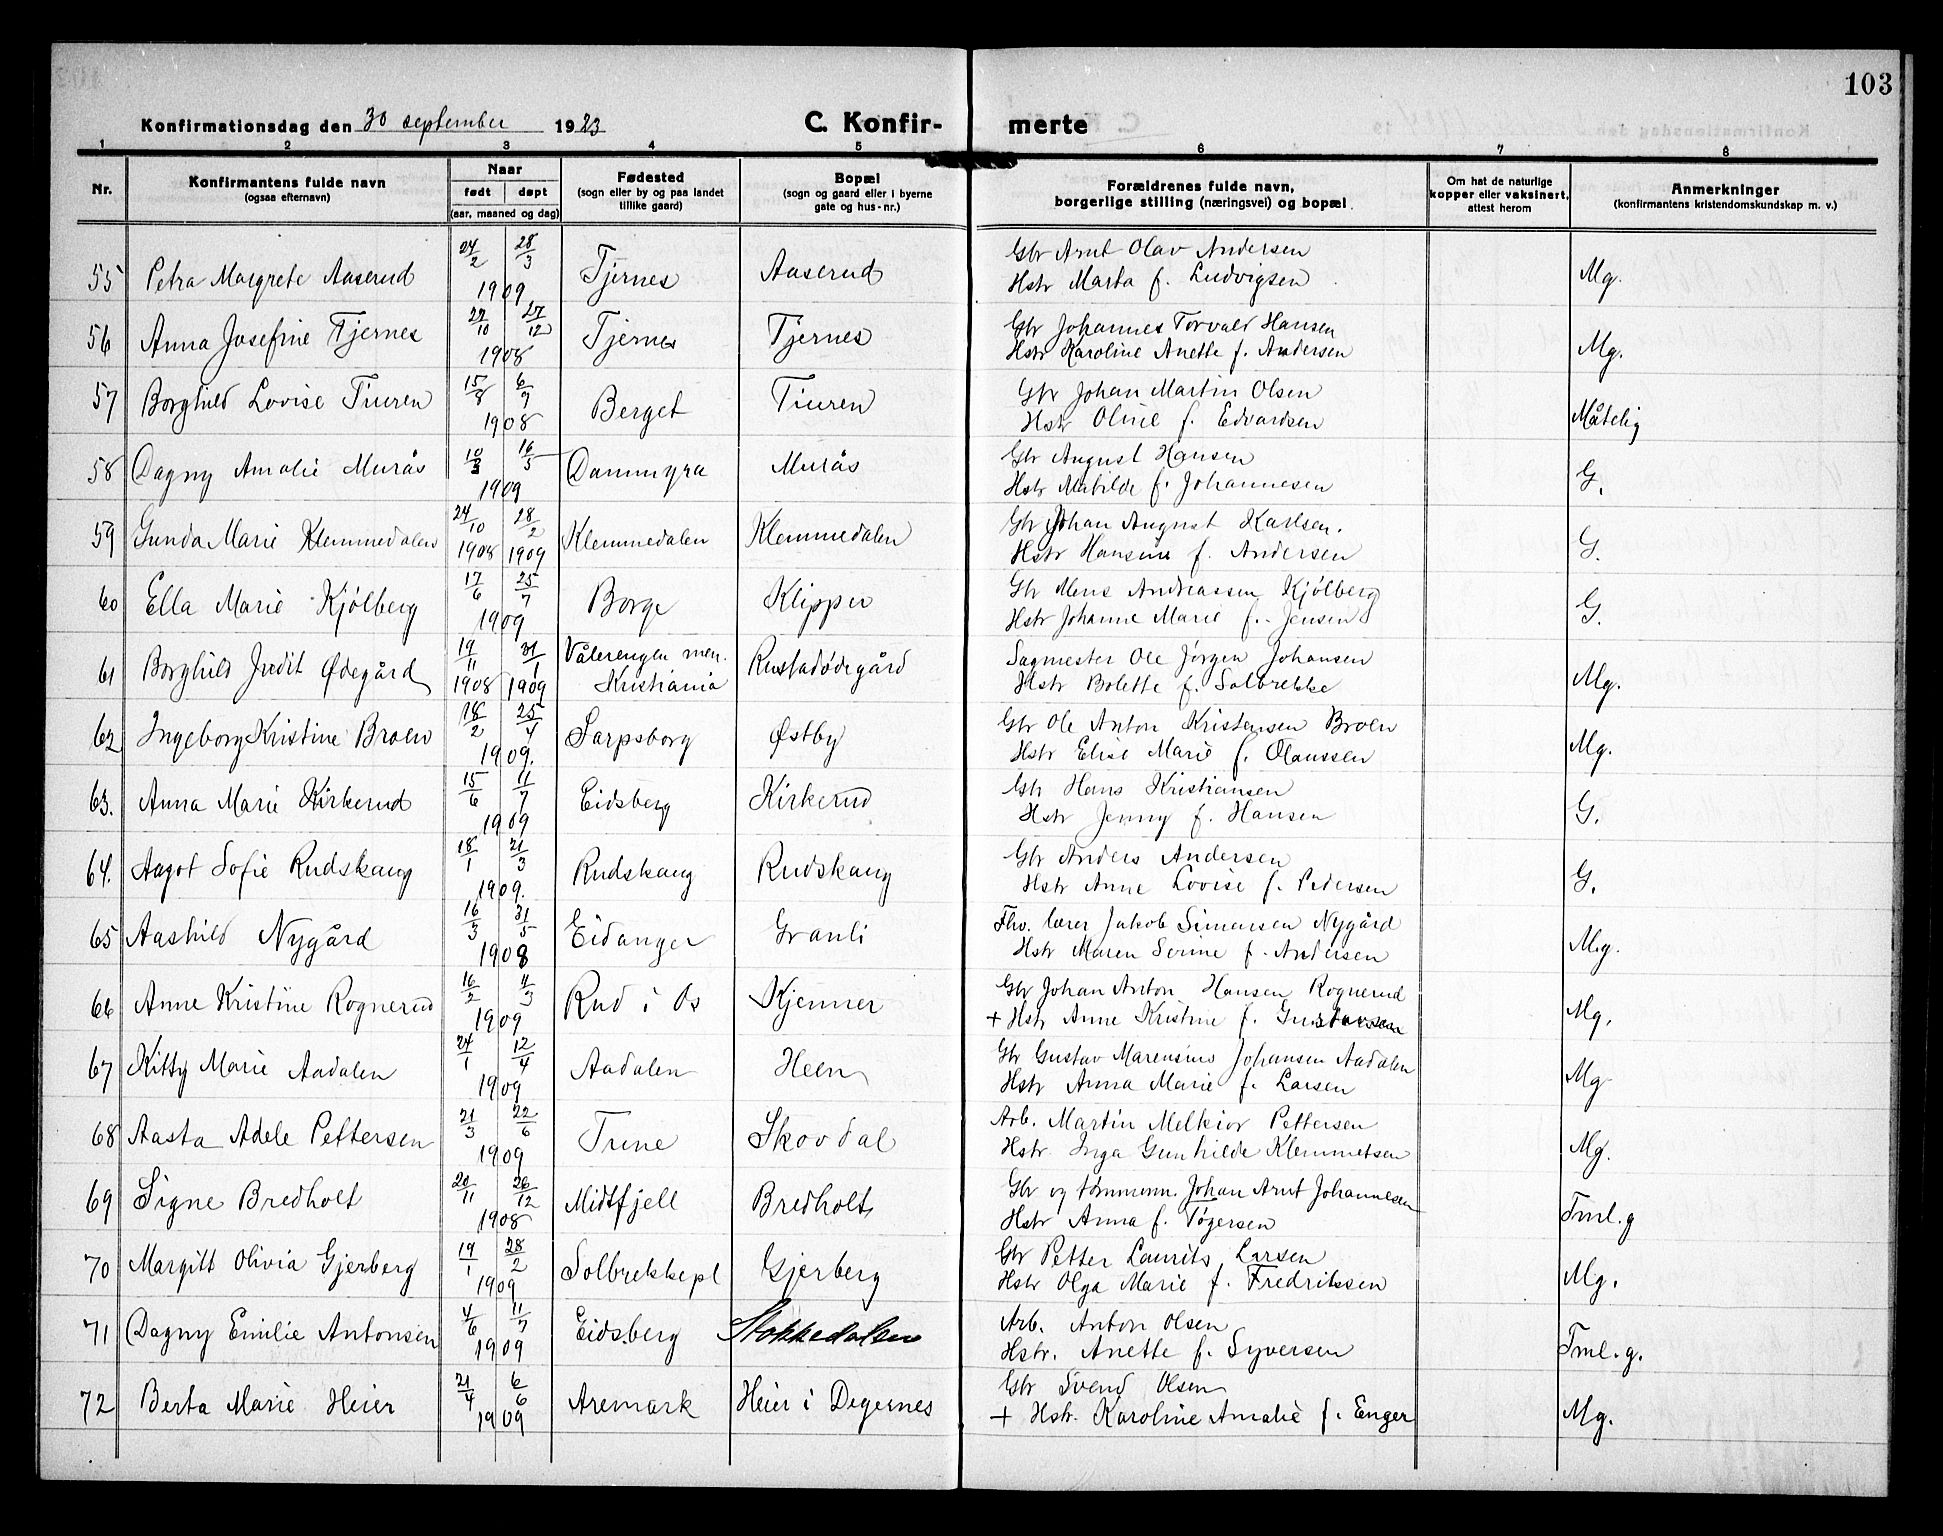 103
Konfirmationsdag den 30 september 1923
C. Konfir- merte
1 2 3 4 5 6 7 8
Nr.
Konfirmantens fulde navn
(ogsaa efternavn)
Naar
født døpt
(aar, maaned og dag)
Fødested
(sogn eller by og paa landet
tillike gaard)
Bopæl
(sogn og gaard eller i byerne
gate og hus-nr.)
Forældrenes fulde navn,
borgerlige stilling (næringsvei) og bopæl
Om hat de naturlige
kopper eller vaksinert,
attest herom
Anmerkninger
(konfirmantens kristendomskundskap m. v.)
55 Petra Margrete Aaserud 24/2 28/3 1909 Tjernes Aaserud Gbr Arnt Olav Andersen
Hstr Marta f. Ludvigsen Mg.
56 Anna Josefine Tjernes 27/10 27/12 1908 Tjernes Tjernes Gbr Johannes Torvald Hansen
Hstr Karoline Anette f. Andersen Mg.
57 Borghild Lovise Tiuren 15/8 6/9 1908 Berget Tiuren Gbr Johan Martin Olsen
Hstr Oline f. Edvardsen Måtelig
58 Dagny Amalie Murås 10/3 16/5 1909 Dammyra Murås Gbr August Hansen
Hstr Matilde f. Johannesen G.
59 Gunda Marie Klemmedalen 24/10 1908 28/2 1909 Klemmedalen Klemmedalen Gbr Johan August Karlsen.
Hstr Hansine f. Andersen G.
60 Ella Marie Kjølberg 17/6 25/7 1909 Borge Klipper Gbr Mens Andreassen Kjølberg
Hstr Johanne Marie f. Jensen G.
61 Borghild Judit Ødegård 19/11 1908 31/1 1909 Vålerengen men.
Kristiania Rustadødegård Sagmester Ole Jørgen Johansen
Hstr Bolette f. Solbrekke Mg.
62 Ingeborg Kristine Broen 18/2 25/4 1909. Sarpsborg Østby Gbr Ole Anton Kristensen Broen
Hstr Elise Marie f. Olaussen Mg.
63. Anna Marie Kirkerud 15/6 11/7 1909 Eidsberg Kirkerud Gbr Hans Kristiansen
Hstr Jenny f. Hansen G.
64. Aagot Sofie Rudskaug 18/1 21/3 1909. Rudskaug Rudskaug Gbr Anders Andersen
Hstr Anne Lovise f. Pedersen G.
65 Aashild Nygård 16/3 31/5 1908 Eidanger Granli Fhv. lærer Jakob Simensen Nygård
Hstr Maren Serine f. Andersen Mg.
66 Anne Kristine Rognerud 16/2 4/3 1909 Rud i Os Kjenner Gbr Johan Anton Hansen Rognerud
+ Hstr Anne Kristine f. Gustavsen Mg.
67 Kitty Marie Aadalen 24/1 12/4 1909 Aadalen Heen Gbr Gustav Marensius Johansen Aadalen
Hstr Anna Marie f. Larsen Mg
68 Aasta Adele Pettersen 21/3 22/6 1909 Tune Skovdal Arb. Martin Melkior Pettersen
Hstr. Inga Gunhilde Klemmetsen Mg.
69 Signe Bredholt 20/11 26/12 1908 Midtfjell Bredholt Gbr og tømmerm. Johan Arnt Johannesen
Hstr Anna f. Tøgersen Tml.g
70 Margitt Olivia Gjerberg 19/1 28/2 1909 Solbrekkepl Gjerberg Gbr Petter Laurits Larsen
Hstr Olga Marie f. Fredriksen Mg.
71 Dagny Emilie Antonsen 4/6 11/7 1909 Eidsberg Stokkedalen Arb. Anton Olsen
Hstr. Anette f. Syversen Tml.g.
72 Berta Marie Heier 21/4 6/6 1909 Aremark Heier i Degernes Gbr Svend Olsen
+ Hstr. Karoline Amalie f. Enger Mg.